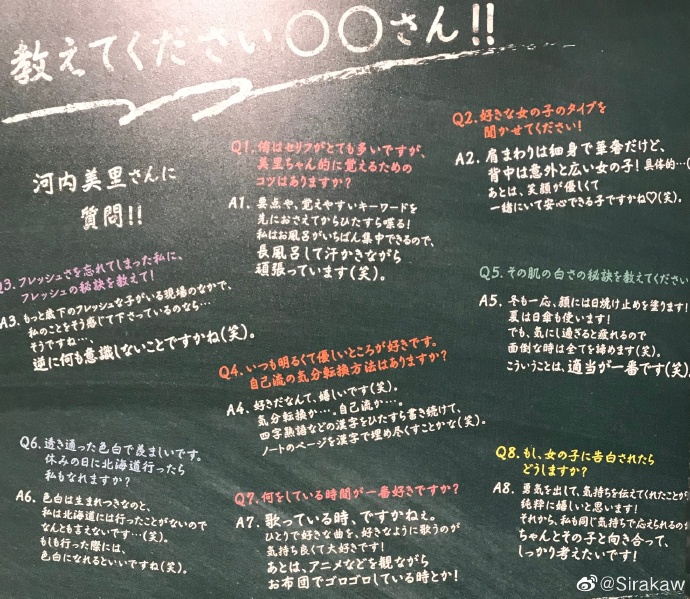 教えてください○○さん!!
河内美里さんに
質問!!
Q1. 侑はセリフがとても多いですが、
美里ちゃん的に覚えるための
コツはありますか?
A1. 要点や、覚えやすいキーワードを
先におさえてからひたすら喋る!
私はお風呂がいちばん集中できるので、
長風呂して汗かきながら
頑張っています(笑)。
Q2. 好きな女の子のタイプを
聞かせてください!
A2. 肩まわりは細身で華奢だけど、
背中は意外と広い女の子!具体的…(
あとは、笑顔が優しくて
一緒にいて安心できる子ですかね♡(笑)。
Q3. フレッシュさを忘れてしまった私に、
フレッシュの秘訣を教えて!
A3. もっと歳下のフレッシュな子がいる現場のなかで、
私のことをそう感じて下さっているのなら…
そうですね…
逆に何も意識しないことですかね(笑)。
Q4. いつも明るくて優しいところが好きです。
自己流の気分転換方法はありますか?
A4. 好きだなんて、嬉しいです(笑)。
気分転換か…。自己流か…。
四字熟語などの漢字をひたすら書き続けて、
ノートのページを漢字で埋め尽くすことかな(笑)。
Q5. その肌の白さの秘訣を教えてください
A5. 冬も一応、顔には日焼け止めを塗ります!
夏は日傘も使います!
でも、気にし過ぎると疲れるので
面倒な時は全てを諦めます(笑)。
こういうことは、適当が一番です(笑)
Q6. 透き通った色白で羨ましいです。
休みの日に北海道行ったら
私もなれますか?
A6. 色白は生まれつきなのと、
私は北海道には行ったことがないので
なんとも言えないです…(笑)。
もしも行った際には、
色白になれるといいですね(笑)。
Q7. 何をしている時間が一番好きですか?
A7. 歌っている時、ですかねぇ。
ひとりで好きな曲を、好きなように歌うのが
気持ち良くて大好きです!
あとは、アニメなどを観ながら
お布団でゴロゴロしている時とか!
Q8. もし、女の子に告白されたら
どうしますか?
A8. 勇気を出して、気持ちを伝えてくれたことが
純粋に嬉しいと思います!
それから、私も同じ気持ちで応えられるのか
ちゃんとその子と向き合って、
しっかり考えたいです!
@Sirakaw